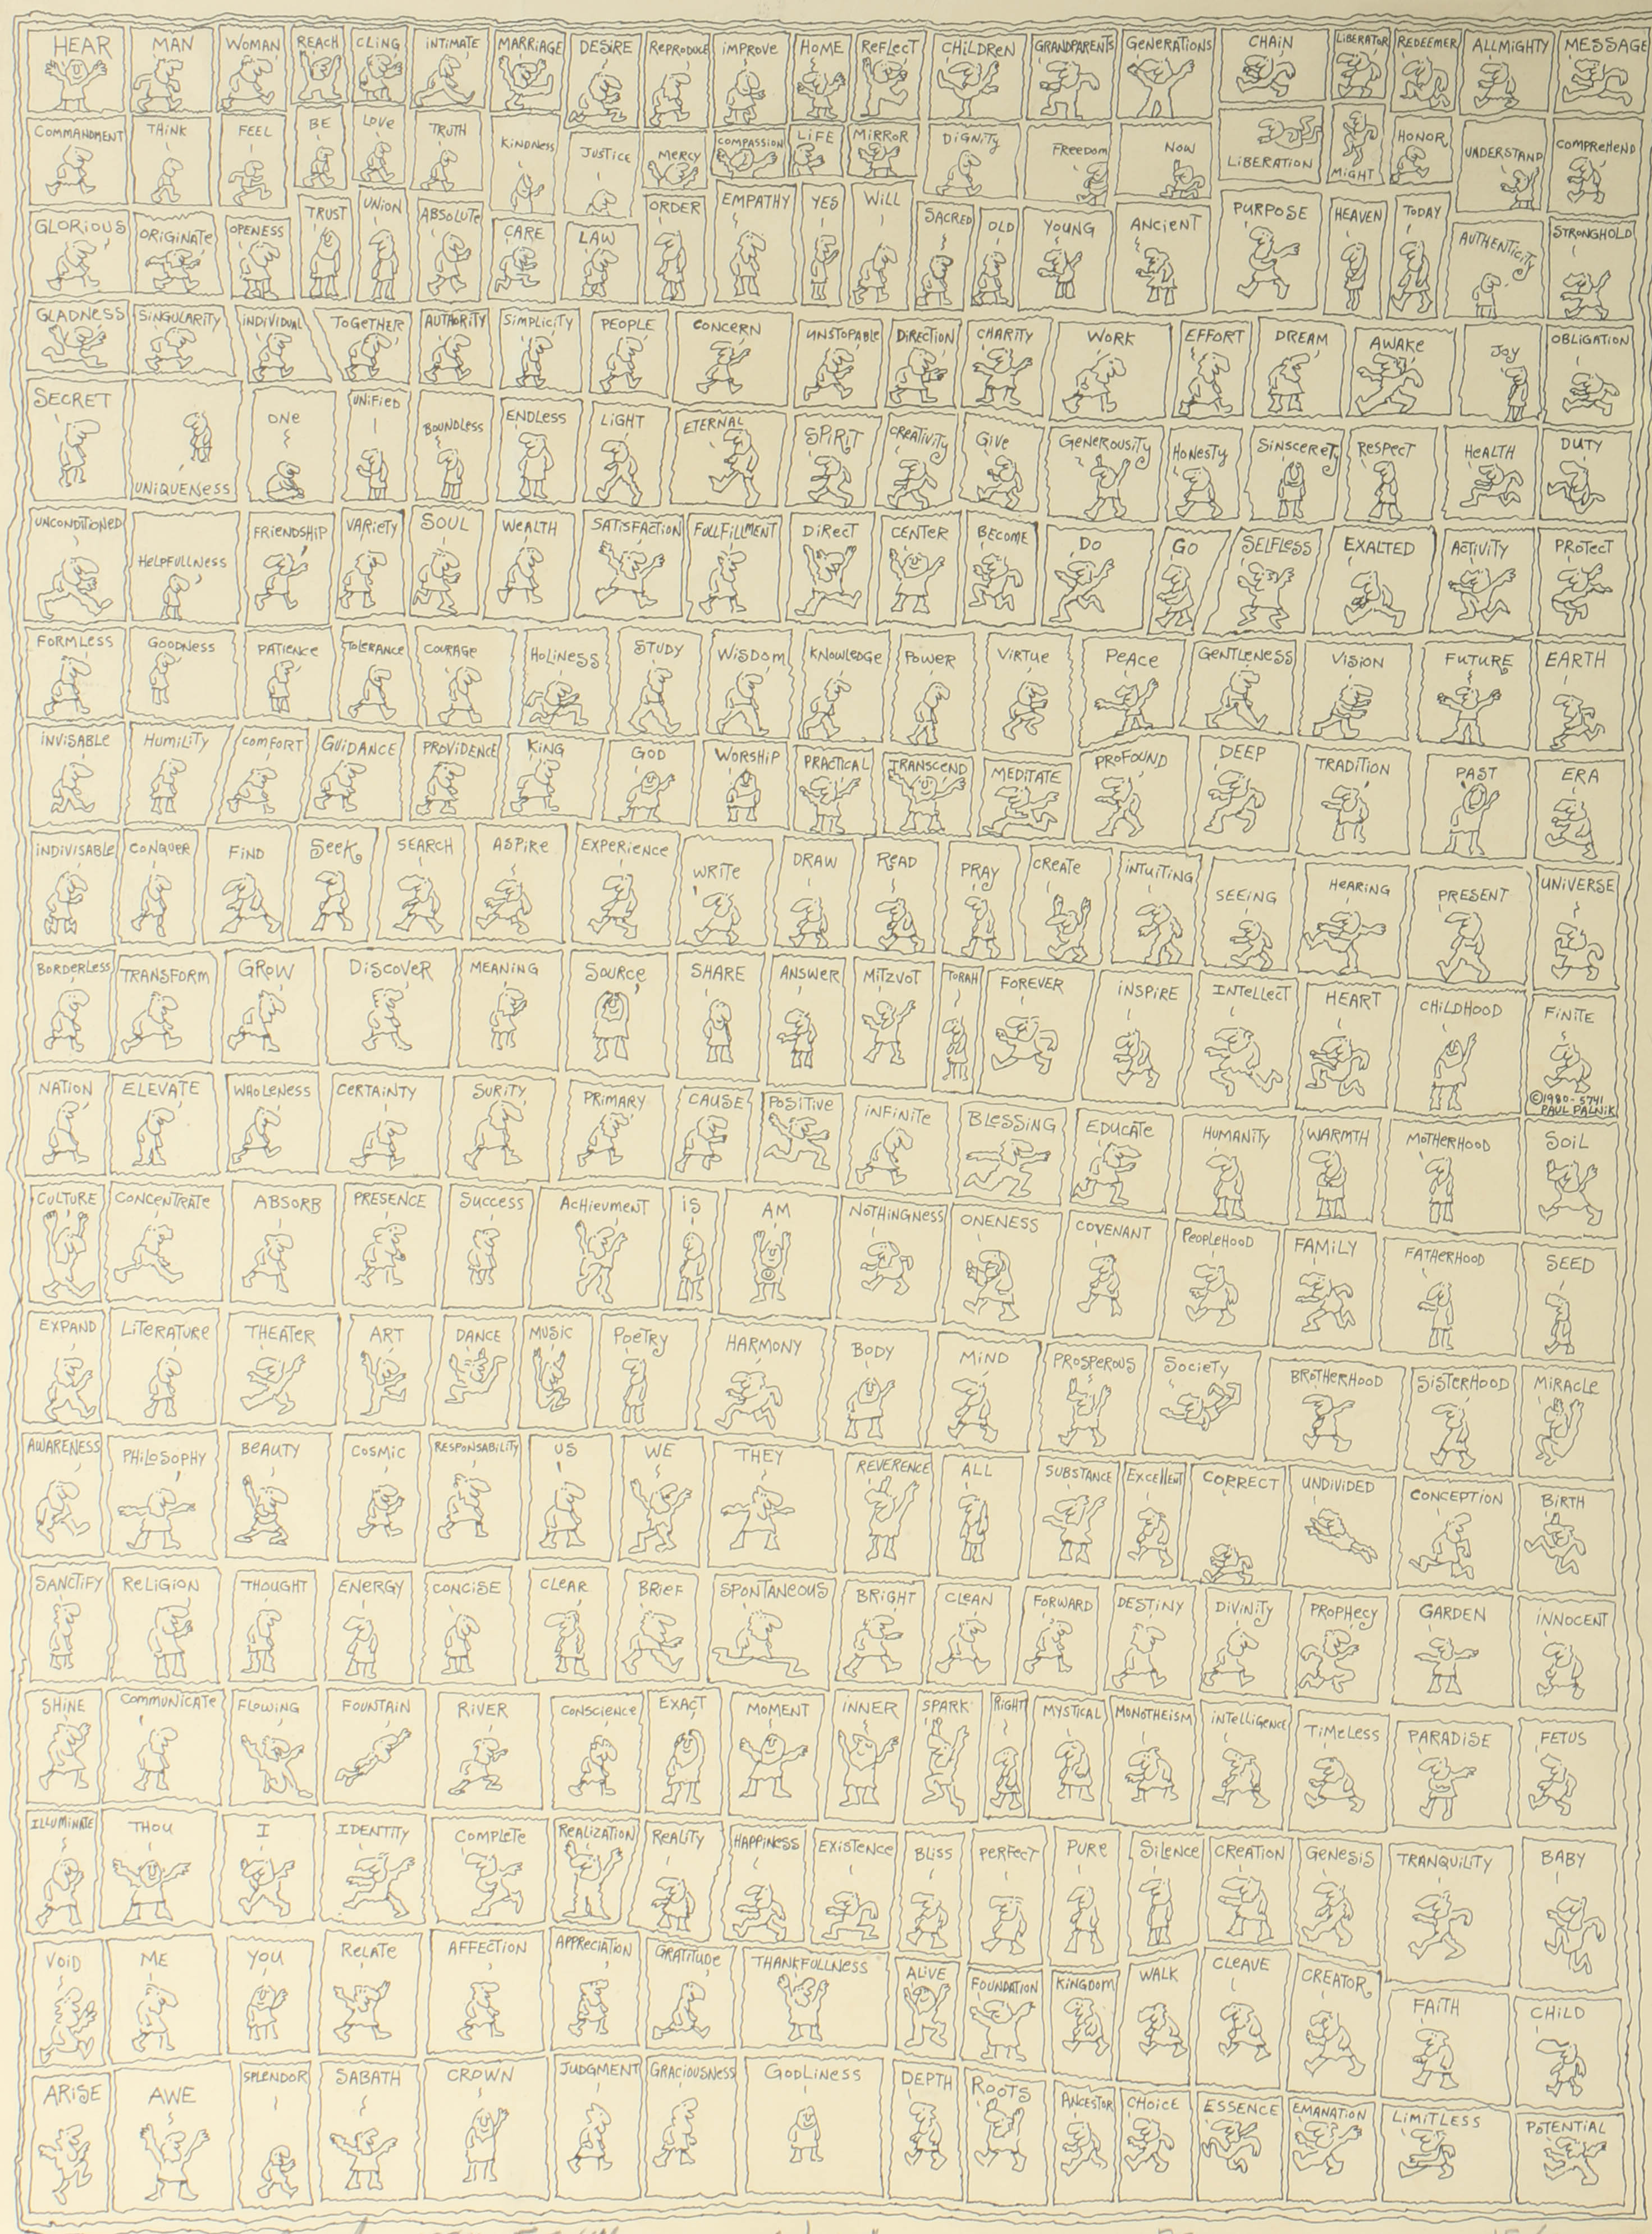 HEAR
MAN
WOMAN
REACH
CLING
INTIMATE
MARRIAGE
DESIRE
REPRODUCE
IMPROVE
HOME
REFLECT
CHILDREN
GRANDPARENTS
GENERATIONS
CHAIN
LIBERATOR
REDEEMER
ALLMIGHTY
MESSAGE
COMMANDMENT
THINK
FEEL
BE
LOVE
TRUTH
KINDNESS
JUSTICE
MERCY
COMPASSION
LIFE
MIRROR
DIGNITY
FREEDOM
NOW
LIBERATION
MIGHT
HONOR
UNDERSTAND
COMPREHEND
GLORIOUS
ORIGINATE
OPENESS
TRUST
UNION
ABSOLUTE
CARE
LAW
ORDER
EMPATHY
YES
WILL
SACRED
OLD
YOUNG
ANCIENT
PURPOSE
HEAVEN
TODAY
AUTHENTICITY
STRONGHOLD
GLADNESS
SINGULARITY
INDIVIDUAL
TOGETHER
AUTHORITY
SIMPLICITY
PEOPLE
CONCERN
UNSTOPABLE
DIRECTION
CHARITY
WORK
EFFORT
DREAM
AWAKE
JOY
OBLIGATION
SECRET
UNIQUENESS
ONE
UNIFIED
BOUNDLESS
ENDLESS
LIGHT
ETERNAL
SPIRIT
CREATIVITY
GIVE
GENEROUSITY
HONESTY
SINSCERETY
RESPECT
HEALTH
DUTY
UNCONDITIONED
HELPFULLNESS
FRIENDSHIP
VARIETY
SOUL
WEALTH
SATISFACTION
FULLFILLMENT
DIRECT
CENTER
BECOME
DO
GO
SELFLESS
EXALTED
ACTIVITY
PROTECT
FORMLESS
GOODNESS
PATIENCE
TOLERANCE
COURAGE
HOLINESS
STUDY
WISDOM
KNOWLEDGE
POWER
VIRTUE
PEACE
GENTLENESS
VISION
FUTURE
EARTH
INVISABLE
HUMILITY
COMFORT
GUIDANCE
PROVIDENCE
KING
GOD
WORSHIP
PRACTICAL
TRANSCEND
MEDITATE
PROFOUND
DEEP
TRADITION
PAST
ERA
INDIVISABLE
CONQUER
FIND
SEEK
SEARCH
ASPIRE
EXPERIENCE
WRITE
DRAW
READ
PRAY
CREATE
INTUITING
SEEING
HEARING
PRESENT
UNIVERSE
BORDERLESS
TRANSFORM
GROW
DISCOVER
MEANING
SOURCE
SHARE
ANSWER
MITZVOT
TORAH
FOREVER
INSPIRE
INTELLECT
HEART
CHILDHOOD
FINITE
©1980-5741
PAUL PALNIK
NATION
ELEVATE
WHOLENESS
CERTAINTY
SURITY
PRIMARY
CAUSE
POSITIVE
INFINITE
BLESSING
EDUCATE
HUMANITY
WARMTH
MOTHERHOOD
SOIL
CULTURE
CONCENTRATE
ABSORB
PRESENCE
SUCCESS
ACHIEVMENT
IS
AM
NOTHINGNESS
ONENESS
COVENANT
PEOPLEHOOD
FAMILY
FATHERHOOD
SEED
EXPAND
LITERATURE
THEATER
ART
DANCE
MUSIC
POETRY
HARMONY
BODY
MIND
PROSPEROUS
SOCIETY
BROTHERHOOD
SISTERHOOD
MIRACLE
AWARENESS
PHILOSOPHY
BEAUTY
COSMIC
RESPONSABILITY
US
WE
THEY
REVERENCE
ALL
SUBSTANCE
EXCELLENT
CORRECT
UNDIVIDED
CONCEPTION
BIRTH
SANCTIFY
RELIGION
THOUGHT
ENERGY
CONCISE
CLEAR
BRIEF
SPONTANEOUS
BRIGHT
CLEAN
FORWARD
DESTINY
DIVINITY
PROPHECY
GARDEN
INNOCENT
SHINE
COMMUNICATE
FLOWING
FOUNTAIN
RIVER
CONSCIENCE
EXACT
MOMENT
INNER
SPARK
RIGHT
MYSTICAL
MONOTHEISM
INTELLIGENCE
TIMELESS
PARADISE
FETUS
ILLUMINATE
THOU
I
IDENTITY
COMPLETE
REALIZATION
REALITY
HAPPINESS
EXISTENCE
BLISS
PERFECT
PURE
SILENCE
CREATION
GENESIS
TRANQUILITY
BABY
VOID
ME
YOU
RELATE
AFFECTION
APPRECIATION
GRATITUDE
THANKFULLNESS
ALIVE
FOUNDATION
KINGDOM
WALK
CLEAVE
CREATOR
FAITH
CHILD
ARISE
AWE
SPLENDOR
SABATH
CROWN
JUDGMENT
GRACIOUSNESS
GODLINESS
DEPTH
ROOTS
ANCESTOR
CHOICE
ESSENCE
EMANATION
LIMITLESS
POTENTIAL